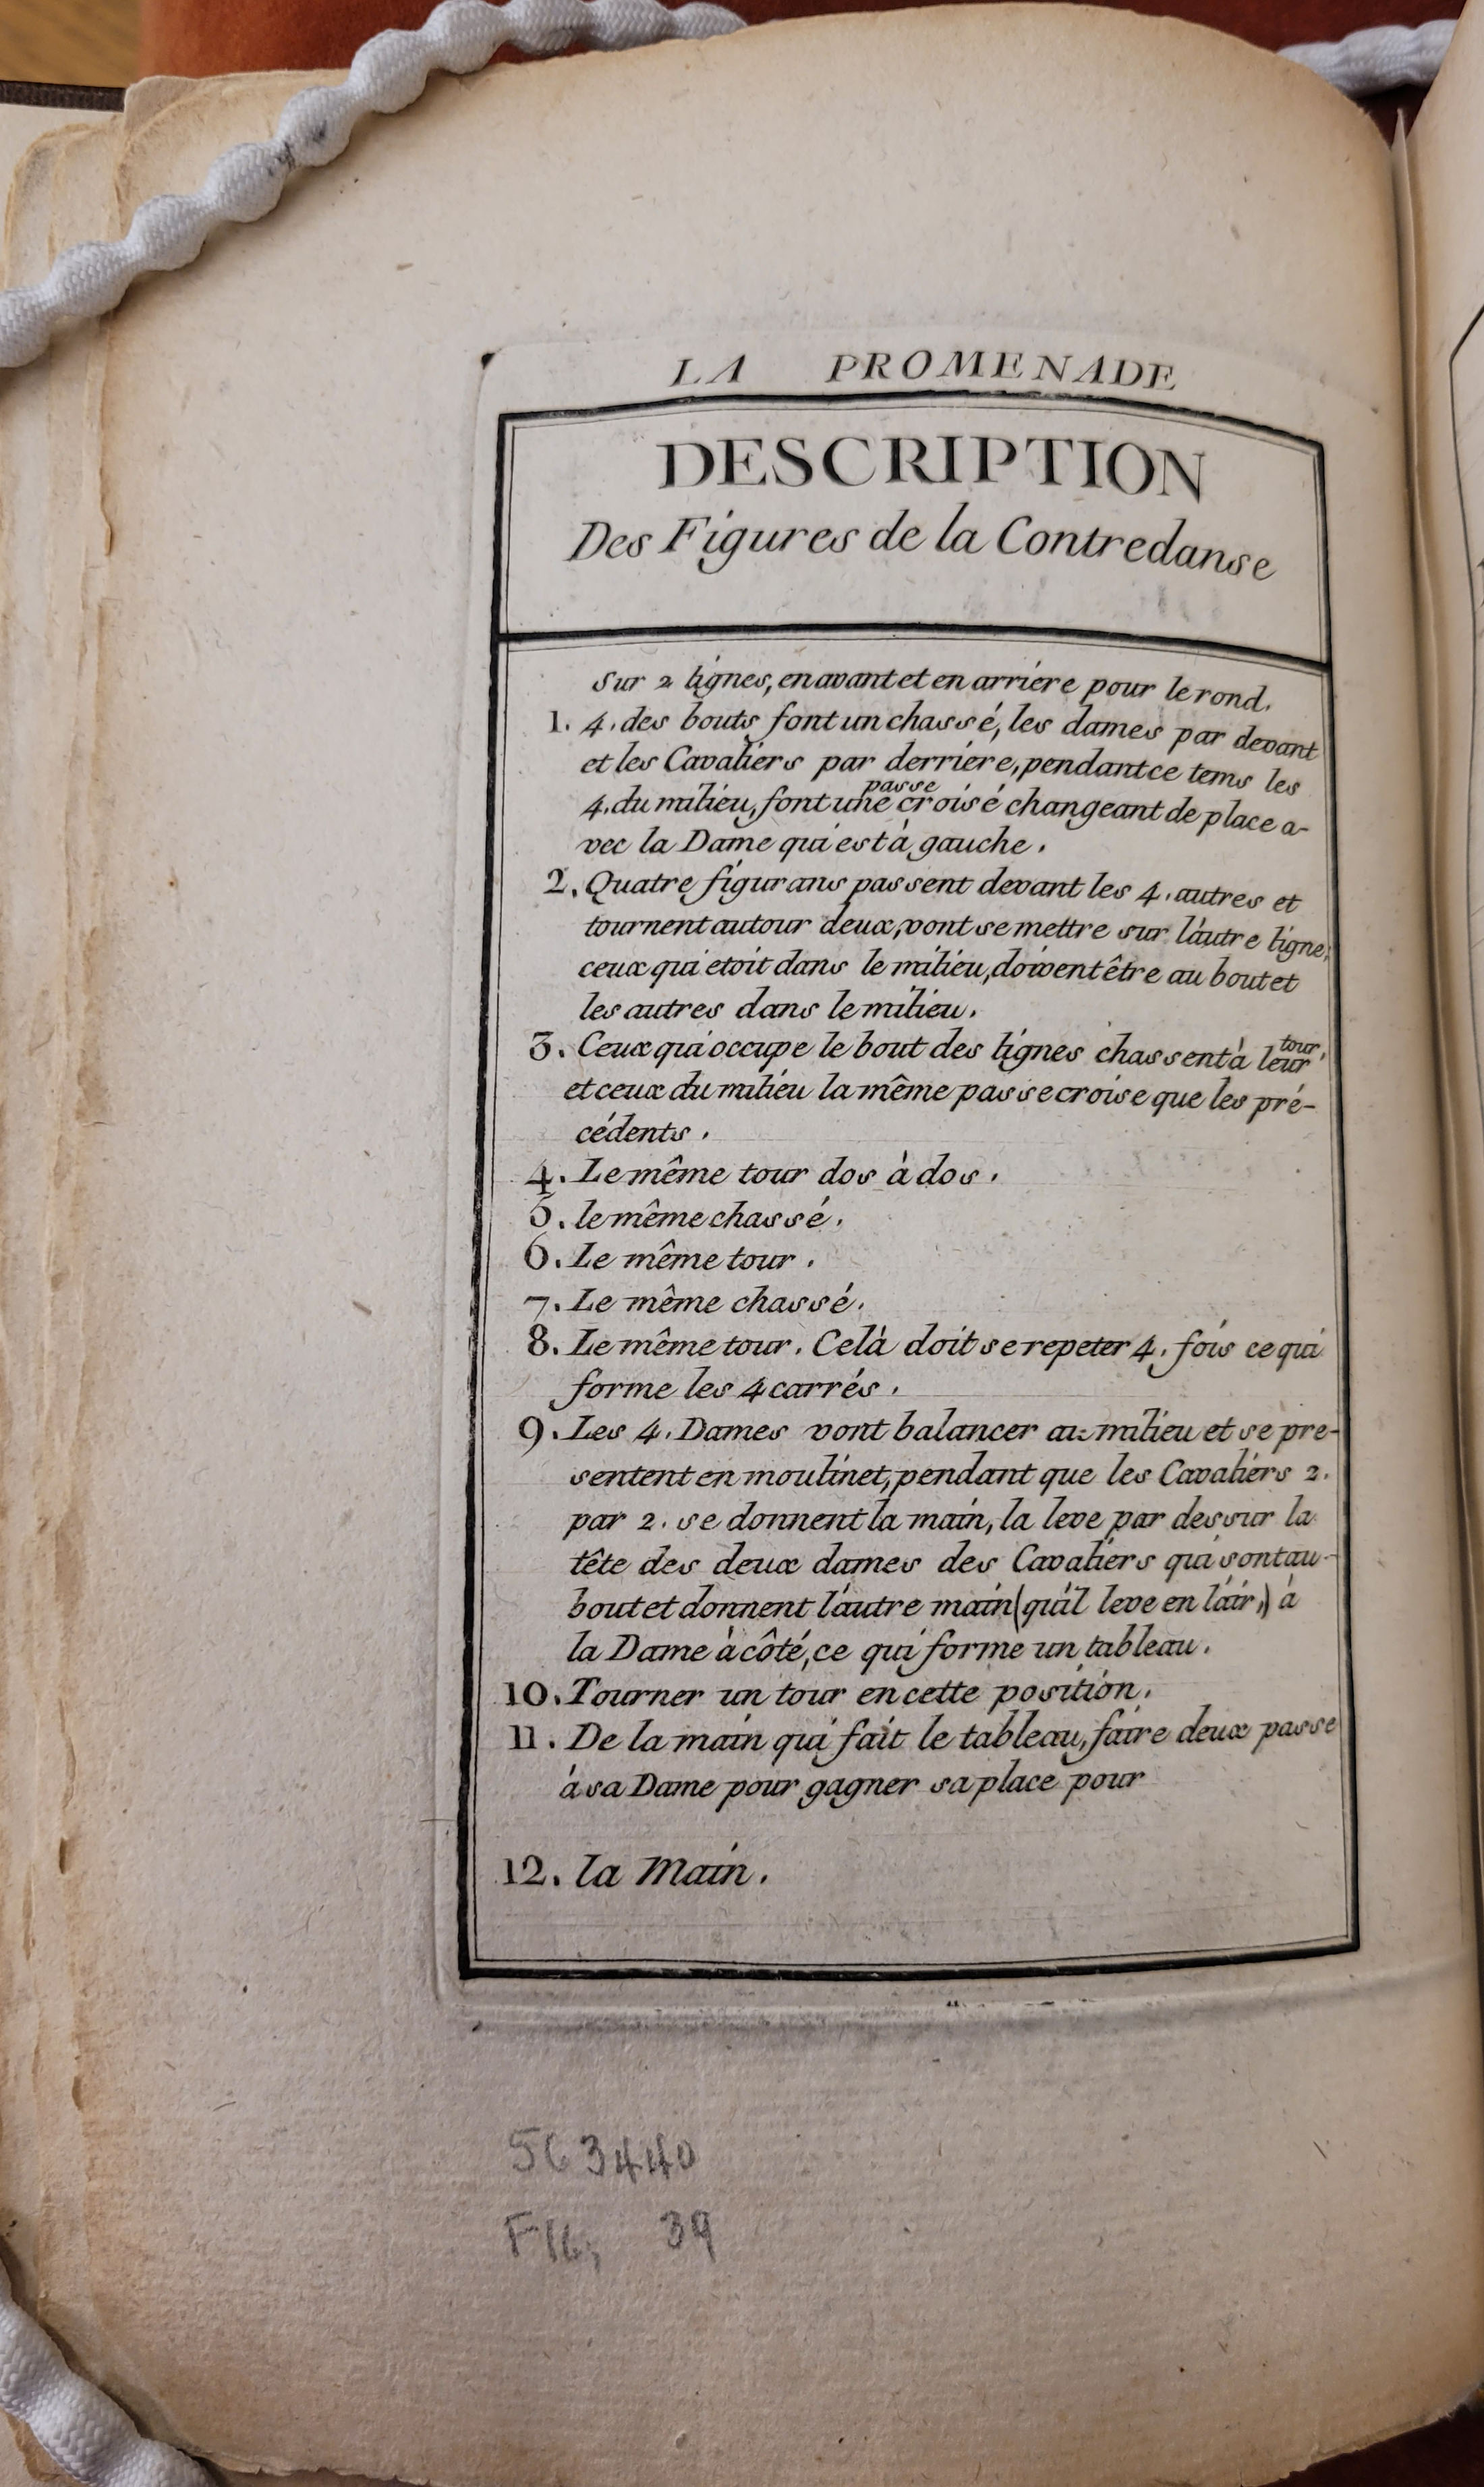 LA PROMENADE
DESCRIPTION
Des Figures de la Contredanse
Sur 2 lignes, en avant et en arriére pour le rond.
1. 4. des bouts font un chassé, les dames par devant
et les Cavaliers par derriere, pendant ce tems les
passe
4. du milieu, font une croisé changeant de place a-
vec la Dame qui est à gauche.
2. Quatre figurans passent devant les 4. autres et
tournent autour deux, vont se mettre sur l'autre ligne;
ceux qui etoit dans le milieu, doivent être au bout et
les autres dans le milieu.
tour,
3. Ceux qui occupe le bout des lignes chassent à leur
et ceux du milieu la même passe croise que les pré-
cédents.
4. Le même tour dos à dos.
5. le même chassé.
6. Le même tour.
7. Le même chassé.
8. Le même tour. Celà doit se repeter 4. fois ce qui
forme les 4 carrés.
9. Les 4. Dames vont balancer au milieu et se pre-
sentent en moulinet, pendant que les Cavaliers 2.
par 2. se donnent la main, la leve par dessur la
tête des deux dames des Cavaliers qui sont au
bout et donnent l'autre main (qu'il leve en l'air,) à
la Dame à côté, ce qui forme un tableau.
10. Tourner un tour en cette position.
11. De la main qui fait le tableau, faire deux passe
à sa Dame pour gagner sa place pour
12. la Main.
563440
F16; 39